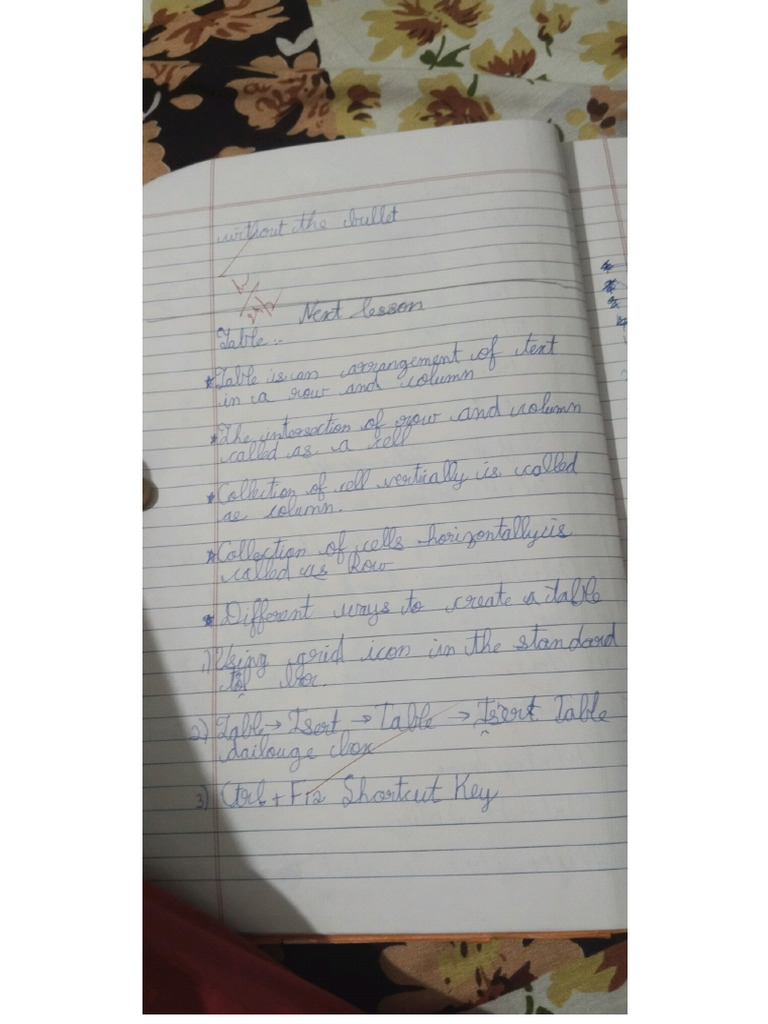 without the bullet
Next lesson
Table :-
* Table is an arrangement of text
in a row and column
* The intersection of row and column
called as a cell
* Collection of cell vertically is called
as column.
* Collection of cells horizontally is
called as Row
* Different ways to create a table
1) Using grid icon in the standard
bar.
2) Table → Isert → Table → Isert Table
dailouge box
3) Ctrl + F12 Shortcut Key